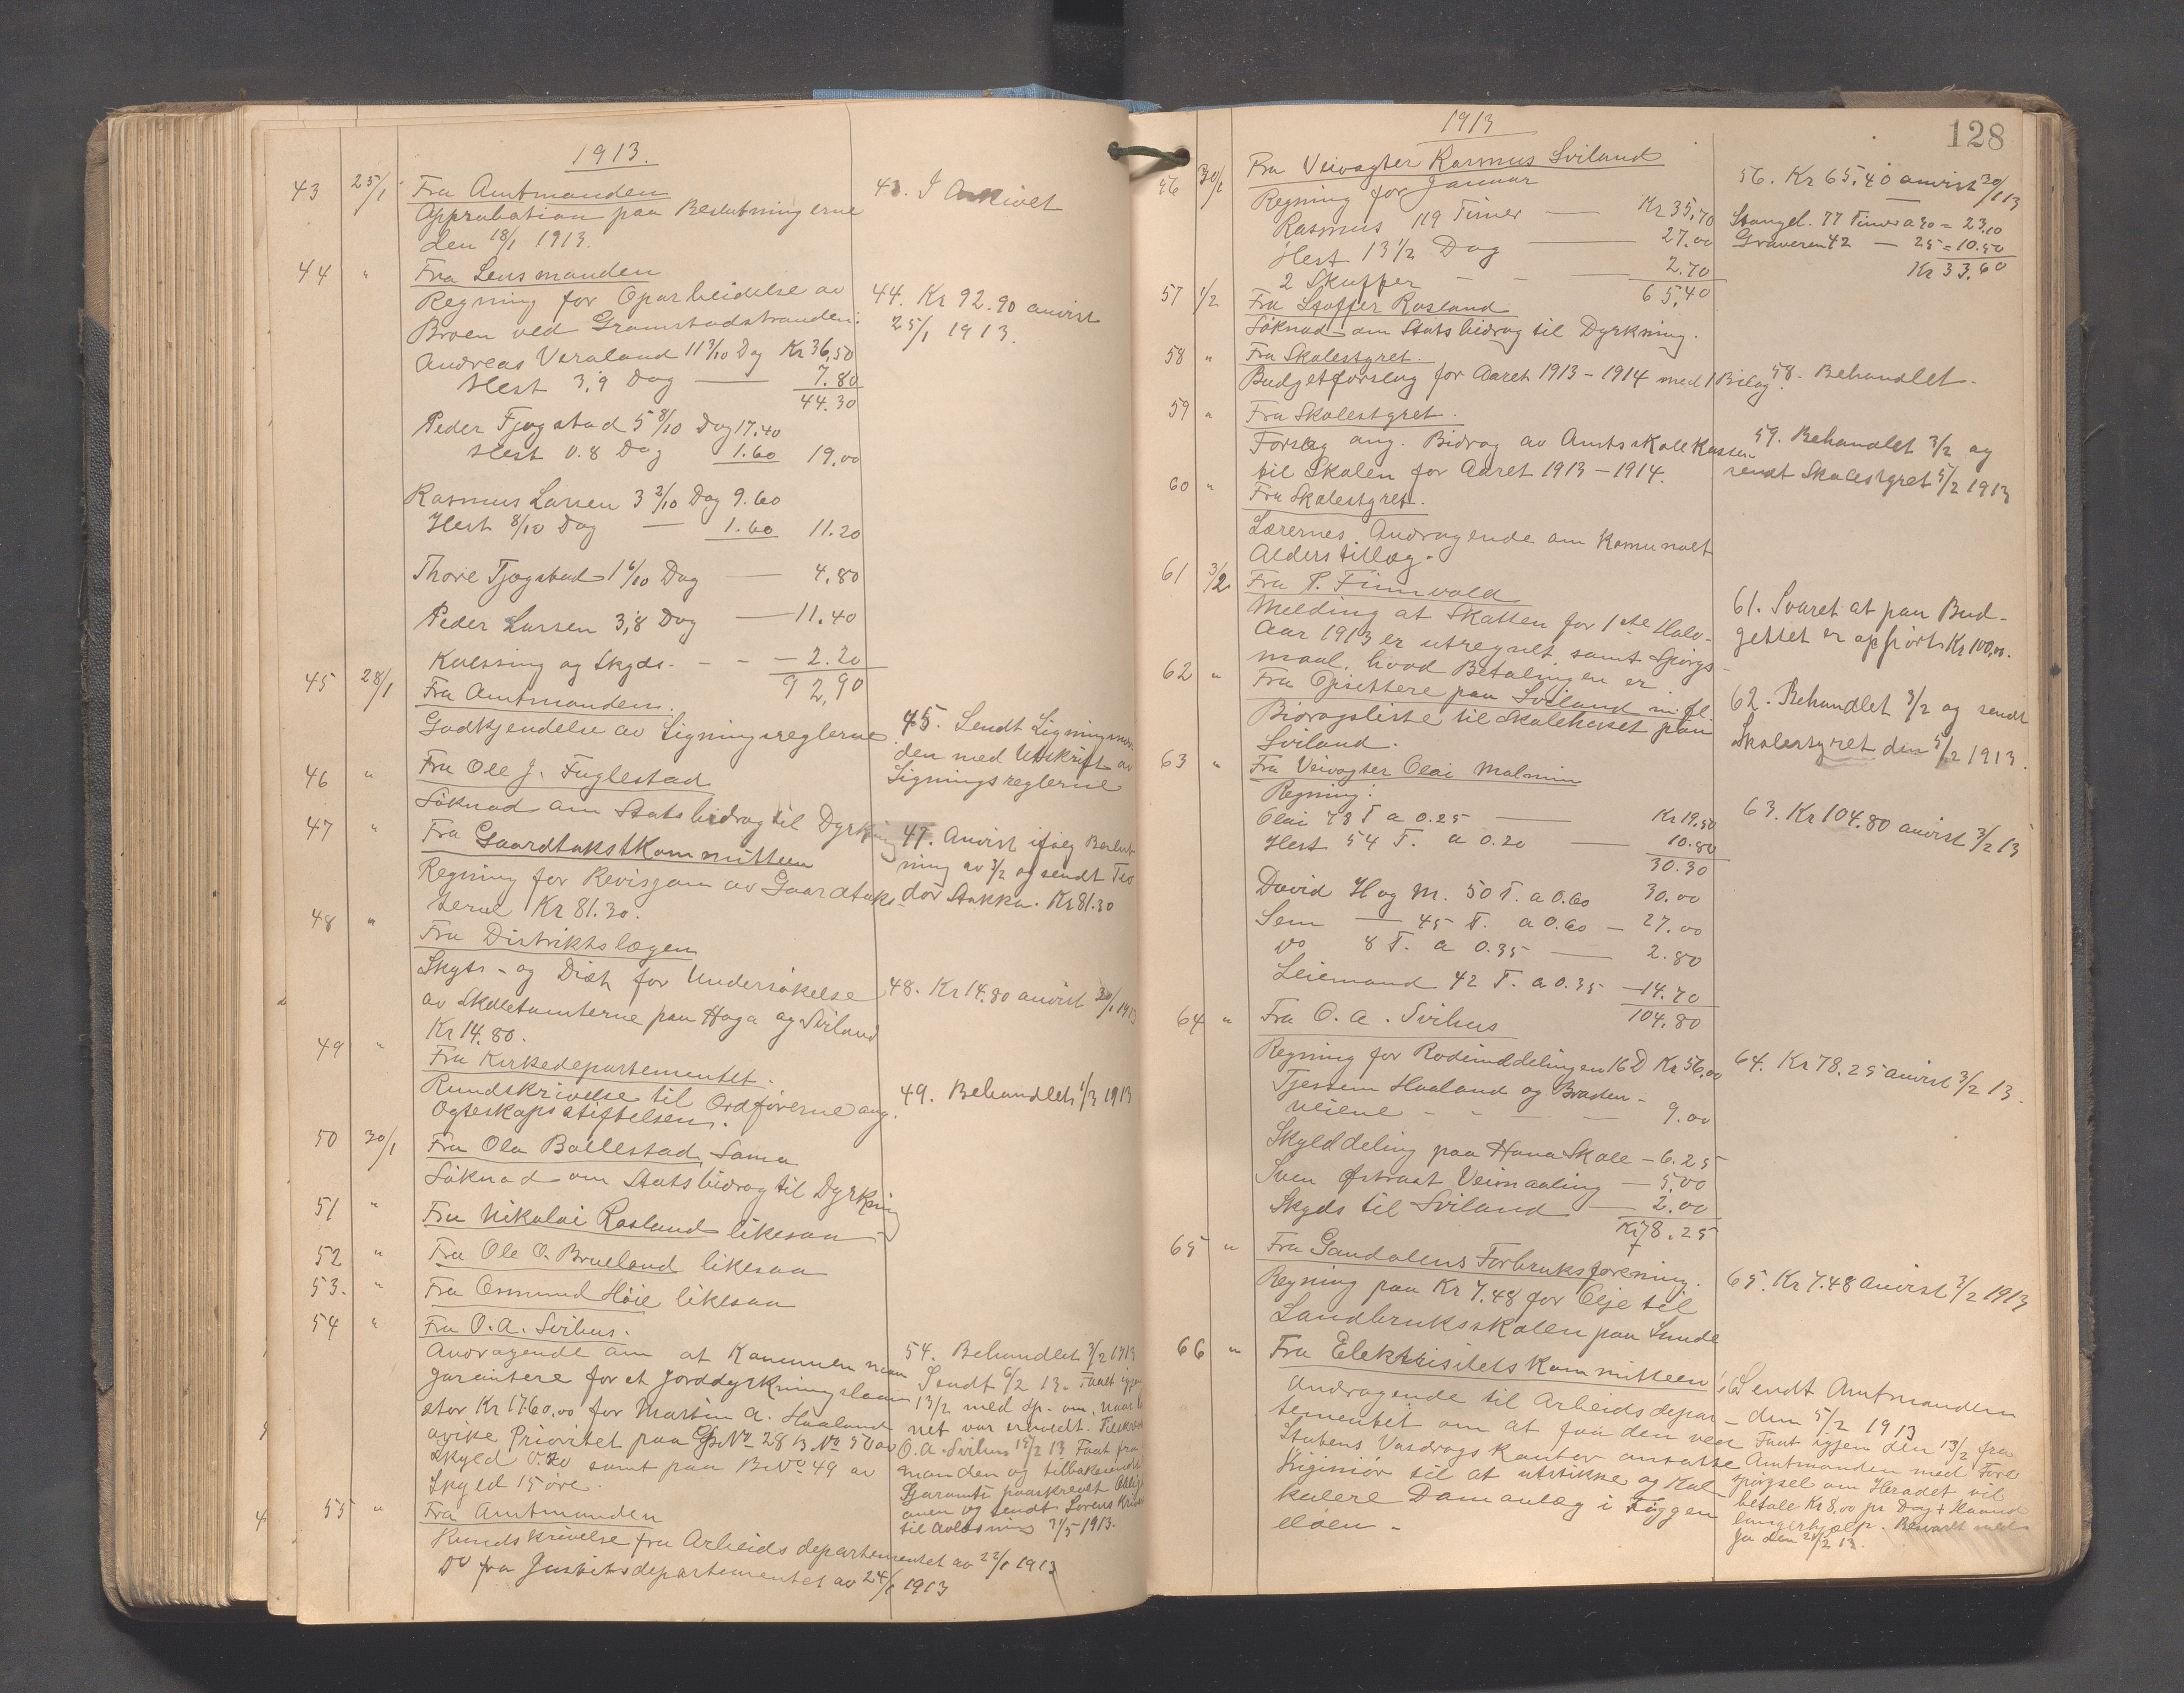 1913.
43 25/1 Fra Amtmanden
Approbation paa Beslutningerne
den 18/1 1913.
43. I Arkivet
44 " Fra Lensmanden
Regning for Oparbeidelse av
Broen ved Gramstadstranden.
Andreas Varaland 11 3/10 Dag Kr 36,50
Hest 3,9 Dag — 7.80
44.30
Peder Fjogstad 5 8/10 Dag 17.40
Hest 0.8 Dag 1.60 19.00
Rasmus Larsen 3 2/10 Dag 9.60
Hest 8/10 Dag — 1.60 11.20
Thore Tjogstad 1 6/10 Dag — 4.80
Peder Larsen 3,8 Dag — 11.40
Kvessing og Skyds - - - 2.20
92,90
44. Kr 92.90 anvist
25/1 1913.
45 28/1 Fra Amtmanden.
Godkjendelse av Ligningsreglerne
45. Sendt
den med Utskrift av
Ligningsreglerne
46 " Fra Ole J. Fuglestad
Söknad om Statsbidrag til Dyrkning
47 " Fra Gaardtakstkommitteen
Regning for Revisjon av Gaardtaks-
terne Kr 81.30.
47. Anvist ifølg Beslut
ning av 3/2 og sendt Teo
dor Stokka. Kr 81.30
48 " Fra Distriktslægen
Skyts- og Diæt for Undersøkelse
av Skoletomterne paa Hoga og Sviland
Kr 14.80.
48. Kr 14.80 anvist 30/1 1913
49 " Fra Kirkedepartementet.
Rundskrivelse til Ordførerne ang.
Ogteskapsstiftelsen.
49. Behandlet 1/3 1913
50 30/1 Fra Ola Bollestad, Soma
Söknad om Statsbidrag til Dyrkning
51 " Fra Nikolai Rosland likesaa
52 " Fra Ole O. Brueland likesaa
53. " Fra Osmund Høie likesaa
54 " Fra O. A. Svihus.
Andragende om at Kommunen maa
garantere for et Jorddyrkningslaan
stor Kr 1760,00 for Martin A. Haaland
avike Prioritet paa G No 28 B.No 50 av
Skyld 0.20 samt paa B.No 49 av
Skyld 15 øre.
54. Behandlet 3/2 1913
Sendt 6/2 13. Faaet igjen
13/2 med Sp. om, naar
net var
O. A. Svihus 15/2 13 Faat fra
manden og tilbakesendt
Garanti paaskrevet
anen og sendt
til avlesning 31/5 1913.
55 " Fra Amtmanden
Rundskrivelse fra Arbeidsdepartementet av 22/1 1913
Do fra Justitsdepartementet av 24/1 1913
1913
128
56 30/1 Fra Veivogter Rasmus Sviland
Regning for Januar
Rasmus 119 Timer — Kr 35,70
Hest 13 1/2 Dag — 27.00
2 Skuffer - - — 2.70
65,40
56. Kr 65.40 anvist 30/1 13
Stangel. 77 Timer a 30 = 23.10
Graveren 42 — 25 = 10.50
Kr 33.60
57 1/2 Fra Stoffer Rosland
Söknad om Statsbidrag til Dyrkning.
58 " Fra Skolestyret.
Budgetforslag for Aaret 1913-1914 med 1 Bilag.
58. Behandlet.
59 " Fra Skolestyret.
Forslag ang. Bidrag av Amtsskolekassen
til Skolen for Aaret 1913-1914.
59. Behandlet 3/2 og
sendt Skolestyret 5/2 1913
60 " Fra Skolestyret.
Lærernes Andragende om Komunalt
Alderstillæg.
61 3/2 Fra P. Finnvold
Melding at Skatten for 1ste Halv-
Aar 1913 er utregnet, samt Spørgs-
maal, hvad Betalingen er.
61. Svaret at paa Bud-
gettet er opført Kr 100,00.
62 " Fra Opsittere paa Sviland m. fl.
Bidragsliste til Skolehuset paa
Sviland.
62. Behandlet 3/2 og sendt
Skolestyret den 5/2 1913.
63 " Fra Veivogter Olai Malmin
Regning:
Olai 78 T a 0.25 — Kr 19,50
Hest 54 T. a 0.20 — 10.80
30.30
David Hog M. 50 T. a 0.60 30.00
Sem — 45 T. a 0.60 — 27.00
vo 8 T. a 0.35 — 2.80
Leiemand 42 T. a 0.35 — 14.70
104.80
63. Kr 104.80 anvist 3/2 13
64 " Fra O. A. Svihus
Regning for Rodeinddelingen 16 D Kr 56,00
Tjessem Haaland og Braden-
veiene - - — 9.00
Skylddeling paa Hana Skole — 6.25
Sven Østraat Veimaaling — 5,00
Skyds til Sviland — 2.00
Kr 78.25
64. Kr 78.25 anvist 3/2 13.
65 " Fra Gandalens Forbruksforening.
Regning paa Kr 7.48 for Olje til
Landbruksskolen paa Lunde
65. Kr 7.48 Anvist 3/2 1913
66 " Fra Elektrisitetskommitteen
Andragende til Arbeidsdepar-
tementet om at faa den ved
Statens Vasdragskontor ansatte
Ingeniør til at utstikke og Kal-
kulere Damanlæg i Figgen
elven -
Sendt Amtmanden
den 5/2 1913
Faat igjen den 13/2 fra
Amtmanden med Fore
spørgsel om Herredet vil
betale Kr 8,00 pr Dag + Haand
langerhjælp. Besvart med
Ja den 24/2 13.